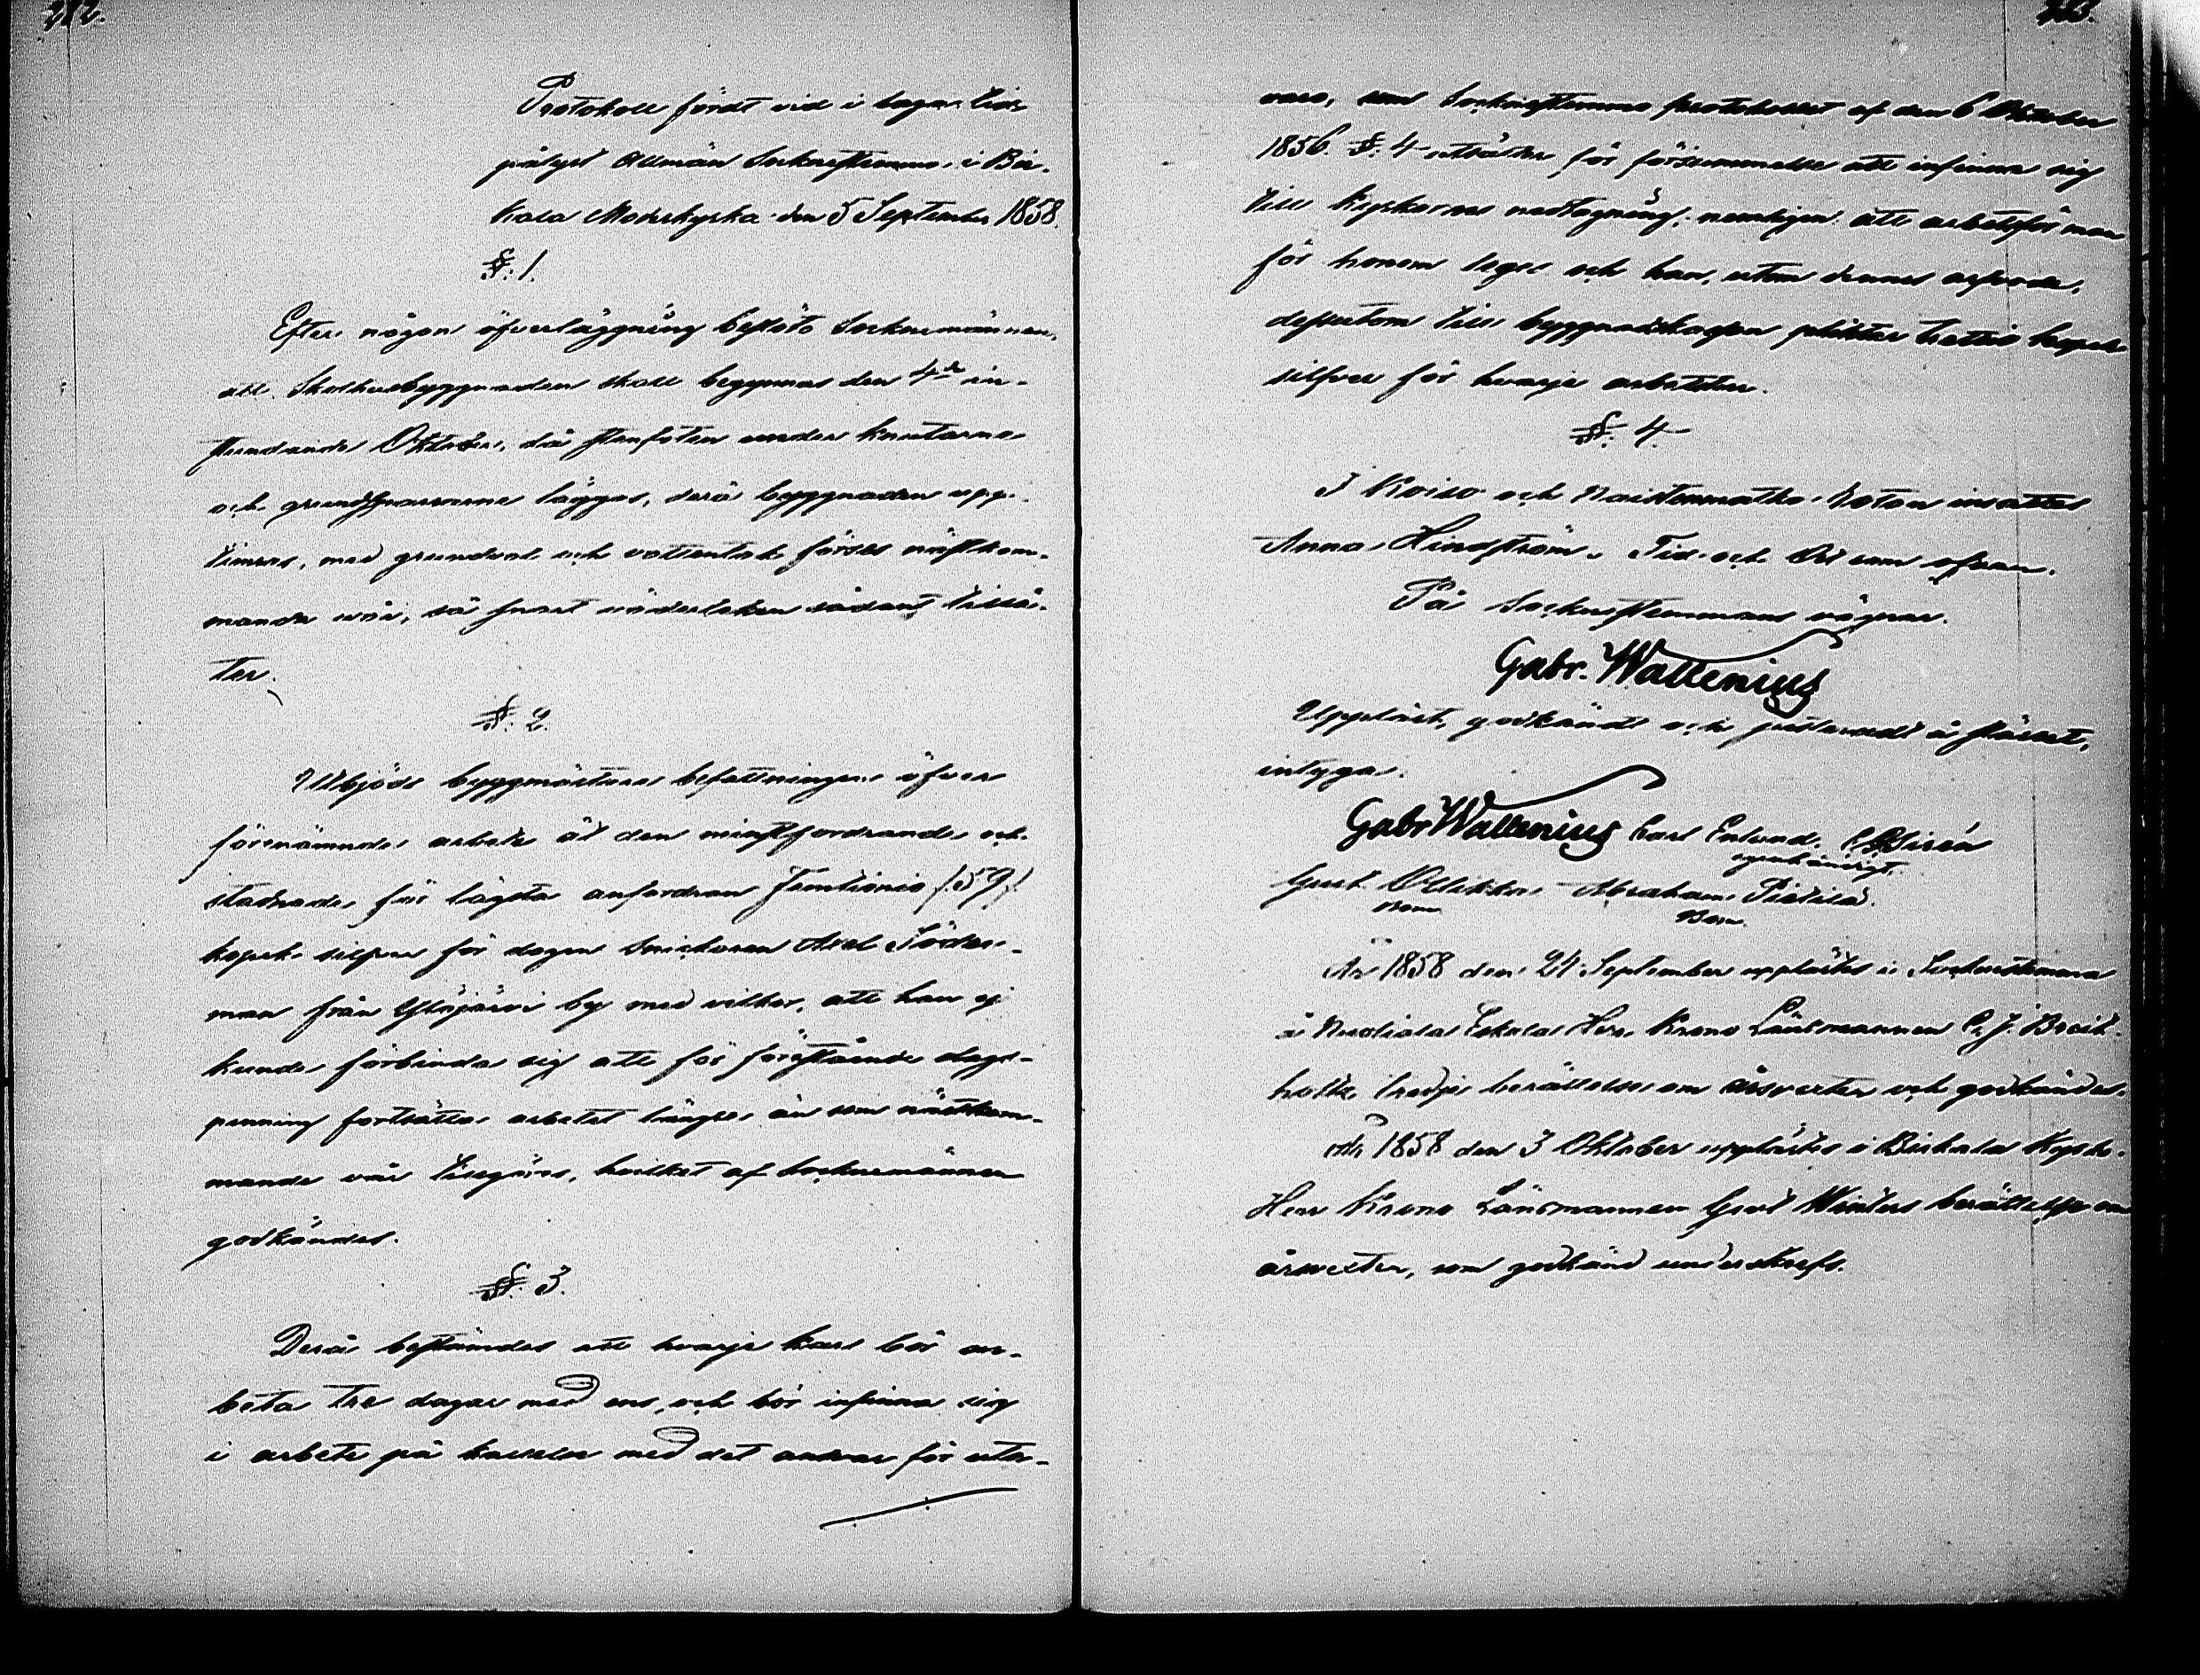 282.
Protokoll fördt vid i laga tid
pålyst Allmän Sockenstemma i Bir-
kala Moderkyrka den 5 September 1858.
§. 1.
Efter någon öfverläggning beslöto Sockenmännen,
att Skolhusbyggnaden skall begynnas den 4de in-
stundande Oktober, då stenfoten under knutarne
och grundstenarne lägges, derå byggnaden upp-
timras, med grundval och vattentak förses nästkom-
mande vår, så snart väderleken sådant tillå-
ter.
§. 2.
Utbjöds byggmästare befattningen öfver
förenämnde arbete åt den minstfordrande och
stadnade för lägsta anfordran femtionio /59/
kopek silfver för dagen Snickaren Axel Söder-
man från Ylöjärvi by med vilkor, att han ej
kunde förbinda sig att för förestående dags-
penning fortsätta arbetet längre än som nästkom-
mande vår tillgöres, hvilket af Sockenmännen
godkändes.
§. 3.
Derå bestämdes att hvarje karl bör ar-
beta tre dagar med ens, och bör infinna sig
i arbete på kallelse med det andra för ute-
283.
varo, som Sockenstemmo protokollet af den 6 Oktober
1856 §. 4 utsätter för försummelse att infinna sig
till Kyrkornes nedtagning, nemligen att arbetsför man
för honom leges och han, utom dennes arfvode,
dessutom till byggnadskassan pliktar trettio kopek
silfver för hvarje arbetsdag.
§. 4.
I Koiso och Naistenmatka rotan insattes
Anna Hindström. Tid och Ort som ofvan.
På Sockenstemmans vägnar.
Gabr. Wallenius
Uppläst, godkändt och justeradt å stället,
intygar.
Gabr Wallenius Carl Enlund. Sirén
egenhändigt.
Gust. Ollikka Abraham Pietilä.
Bom. Bom.
År 1858 den 21 September upplästes i Sockenstemma
å Nuoliala Eskola Herr Krono Länsmannen C. J. Breit-
holtz tredje berättelse om årsvexten och godkändes.
År 1858 den 3 Oktober upplästes i Birkala Kyrka
Herr Krono Länsmannen Gust Winters berättelse om
årsvexten, som godkänd underskrefs.